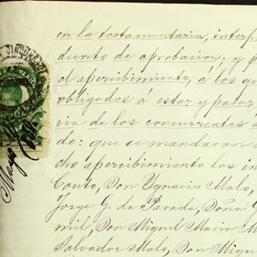 en la testamentaria, interp
decreto de aprobacion, y p
el apercibimiento, á los q
obligados á estar y pasar
de los concurrentes
do: que se mandaran
cho apercibimiento los in
Couto, Don Ygnacio Malo,
Jorge G. de Parada, Doña
mil, Don Miguel Maria M
Salvador Malo, Don Migu
Mayo